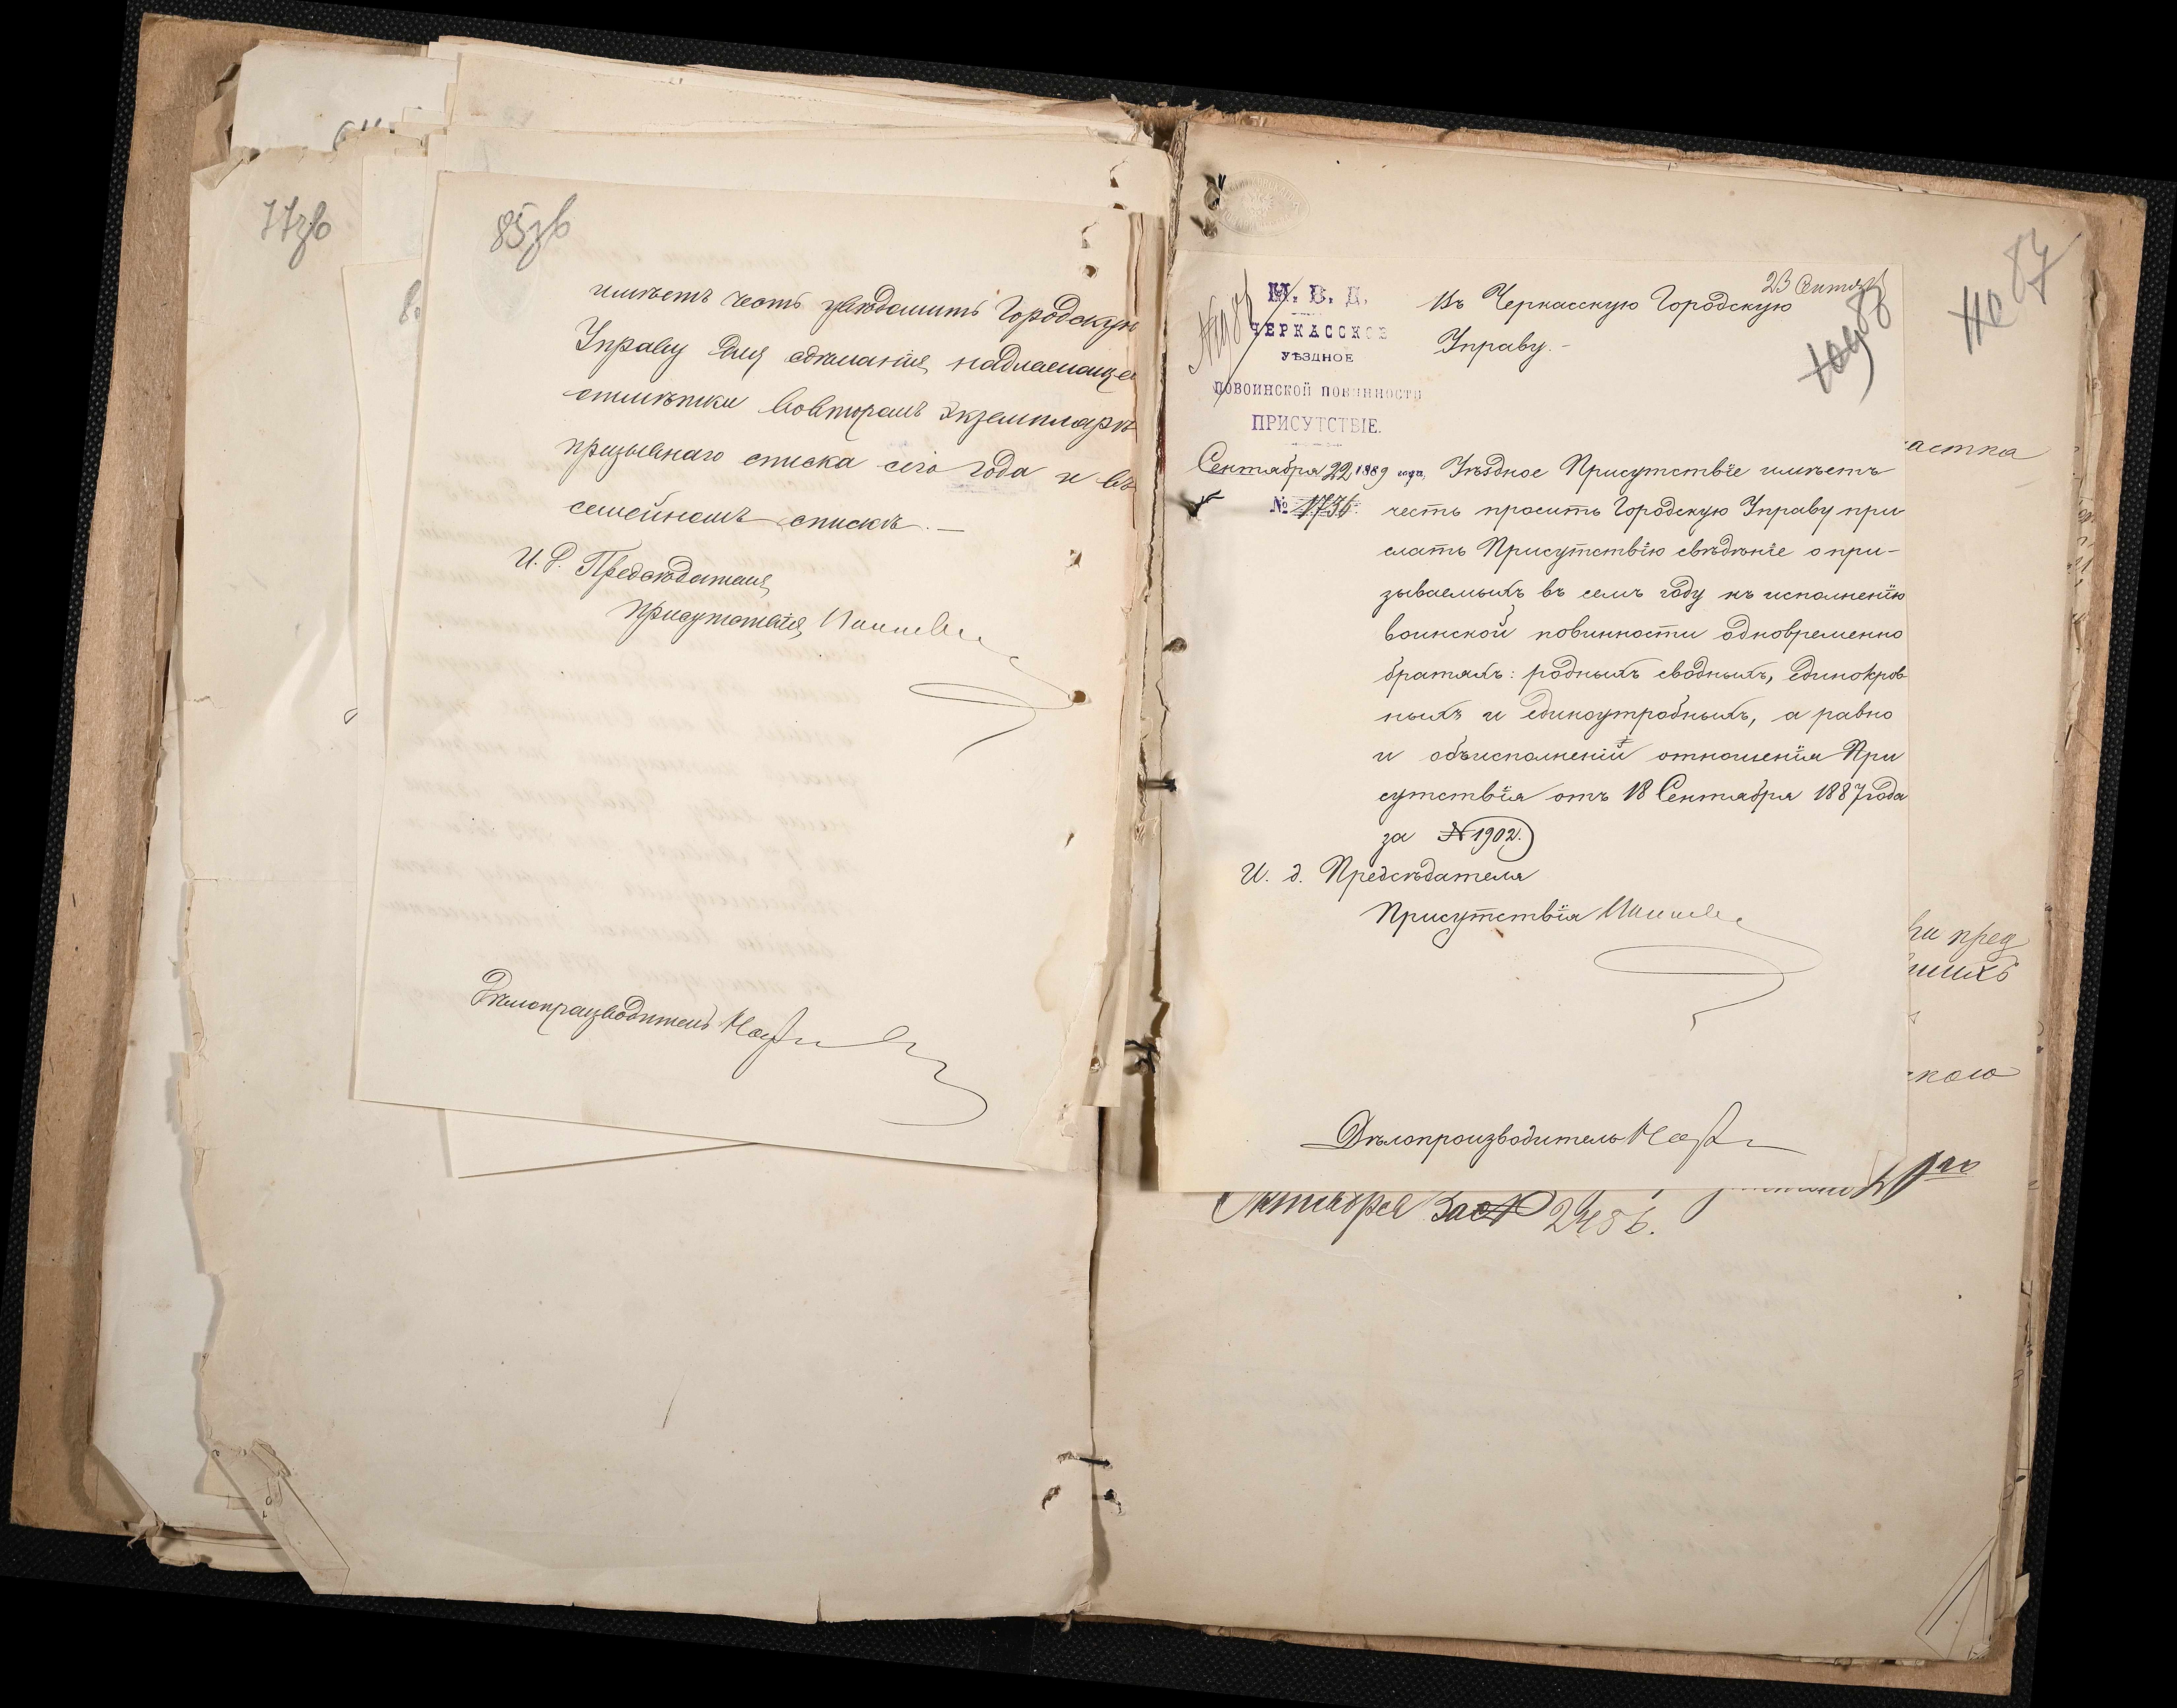 77зв
85зв
имѣетъ честь увѣдомить Городскую
Управу для сдѣланія надлежаще
отмѣтки вовторомъ экземплярѣ
призывнаго списка сего года и въ
семейномъ спискѣ. —
И. д. Предсѣдателя
Присутствія
Дѣлопроизводитель
87
23 Сентяб
88
М. В. Д.
ЧЕРКАССКОЕ
УѢЗДНОЕ
ПОВОИНСКОЙ ПОВИННОСТИ
ПРИСУТСТВІЕ.
Сентября 22 1889 года.
№ 1736.
Въ Черкасскую Городскую
Управу. –
Уѣздное Присутствіе имѣетъ
честь просить Городскую Управу при
слать Присутствію свѣдѣніе о при-
зываемыхъ въ семъ году къ исполненію
воинской повинности одновременно
братьяхъ: родныхъ сводныхъ, единокров
ныхъ и единоутробныхъ, а равно
и объисполненіи отношенія При
сутствія отъ 18 Сентября 1887 года
за № 1902.
И. д. Предсѣдателя
Присутствія
Дѣлопроизводитель
астка
ки пред
кого
Октября За № 2456.